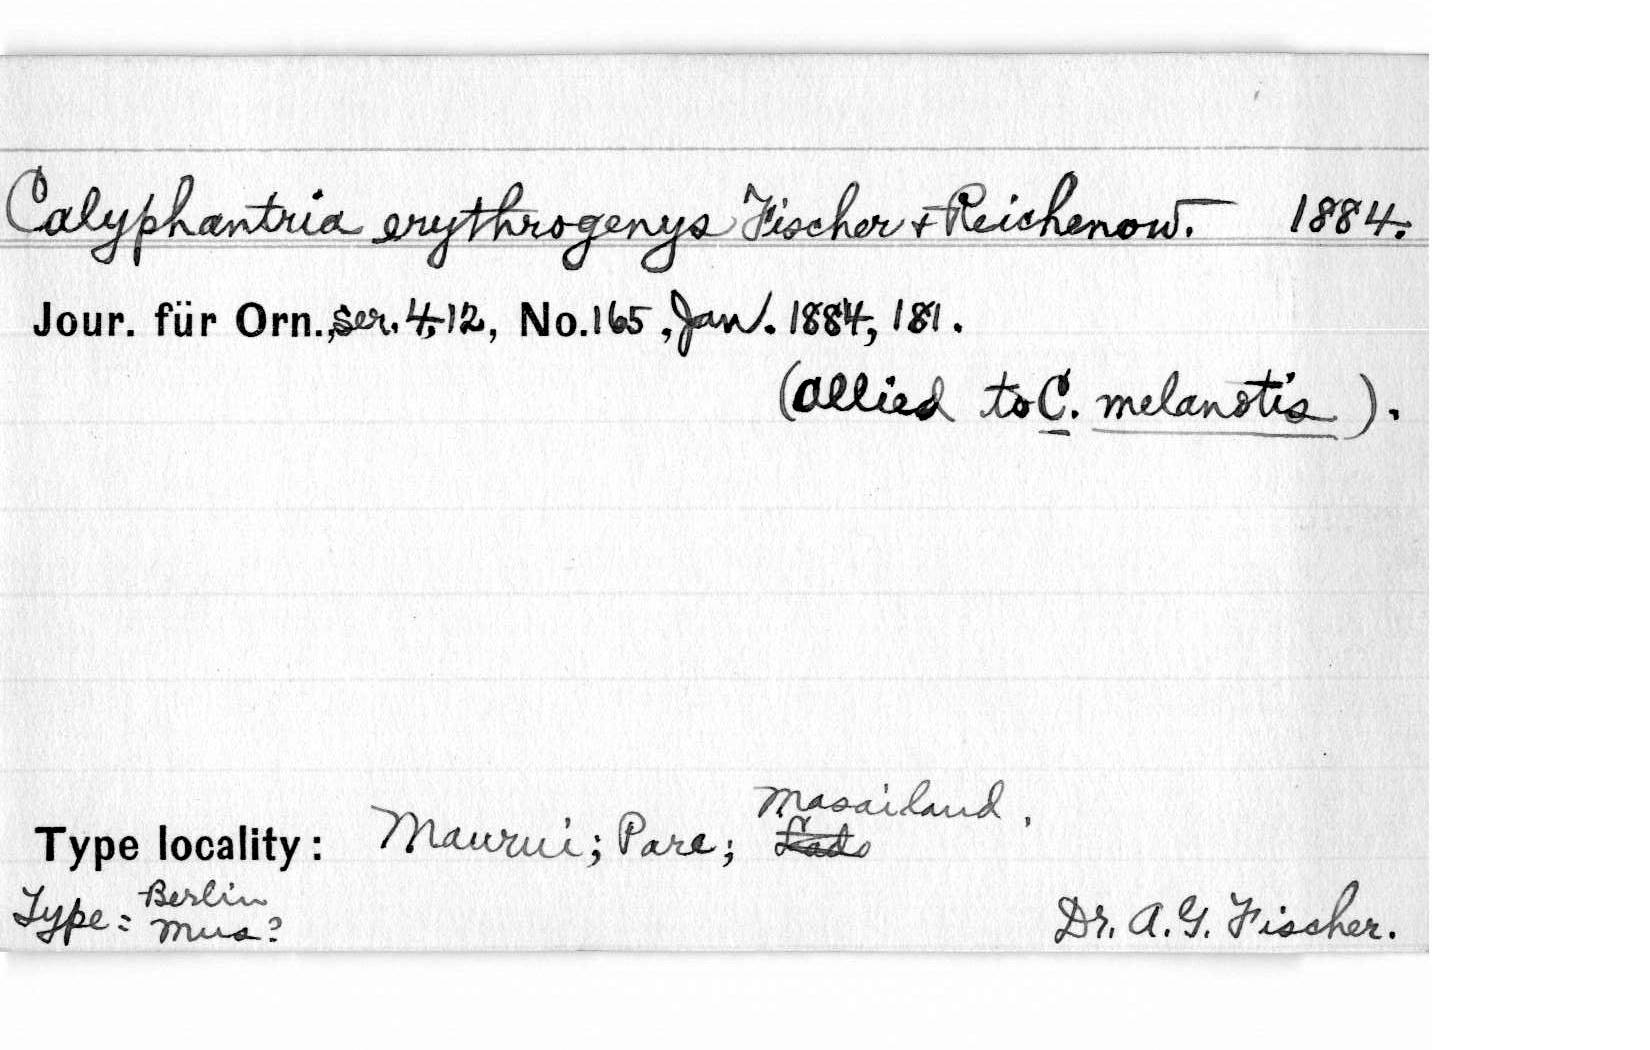 Calyphantria erythrogenys Fischer & Reichenow. 1884.
Jour. für Orn., ser. 4, 12, No. 165, Jan. 1884, 181.
(allied to C. melanotis).
Masailand.
Type locality: Maurui; Pare;
Type: Berlin Mus?
Dr. A. G. Fischer.